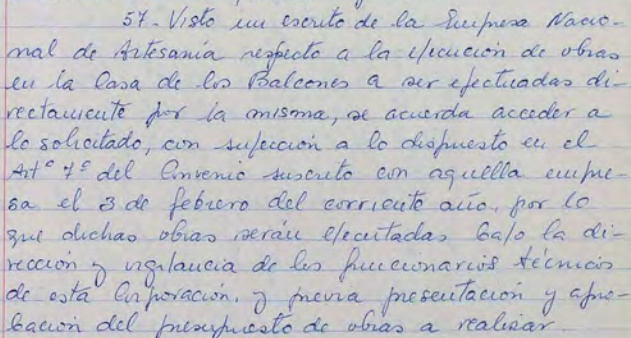 57.- Visto un escrito de la Empresa Nacio-
nal de Artesanía respecto a la ejecución de obras
en la Casa de los Balcones a ser efectuadas di-
rectamente por la misma, se acuerda acceder a
lo solicitado, con sujección a lo dispuesto en el
Artº 7º del Convenio suscrito con aquella empre-
sa el 3 de febrero del corriente año, por lo
que dichas obras serán ejecutadas bajo la di-
rección y vigilancia de los funcionarios técnicos
de esta Corporación, y previa presentación y apro-
bación del presupuesto de obras a realizar.